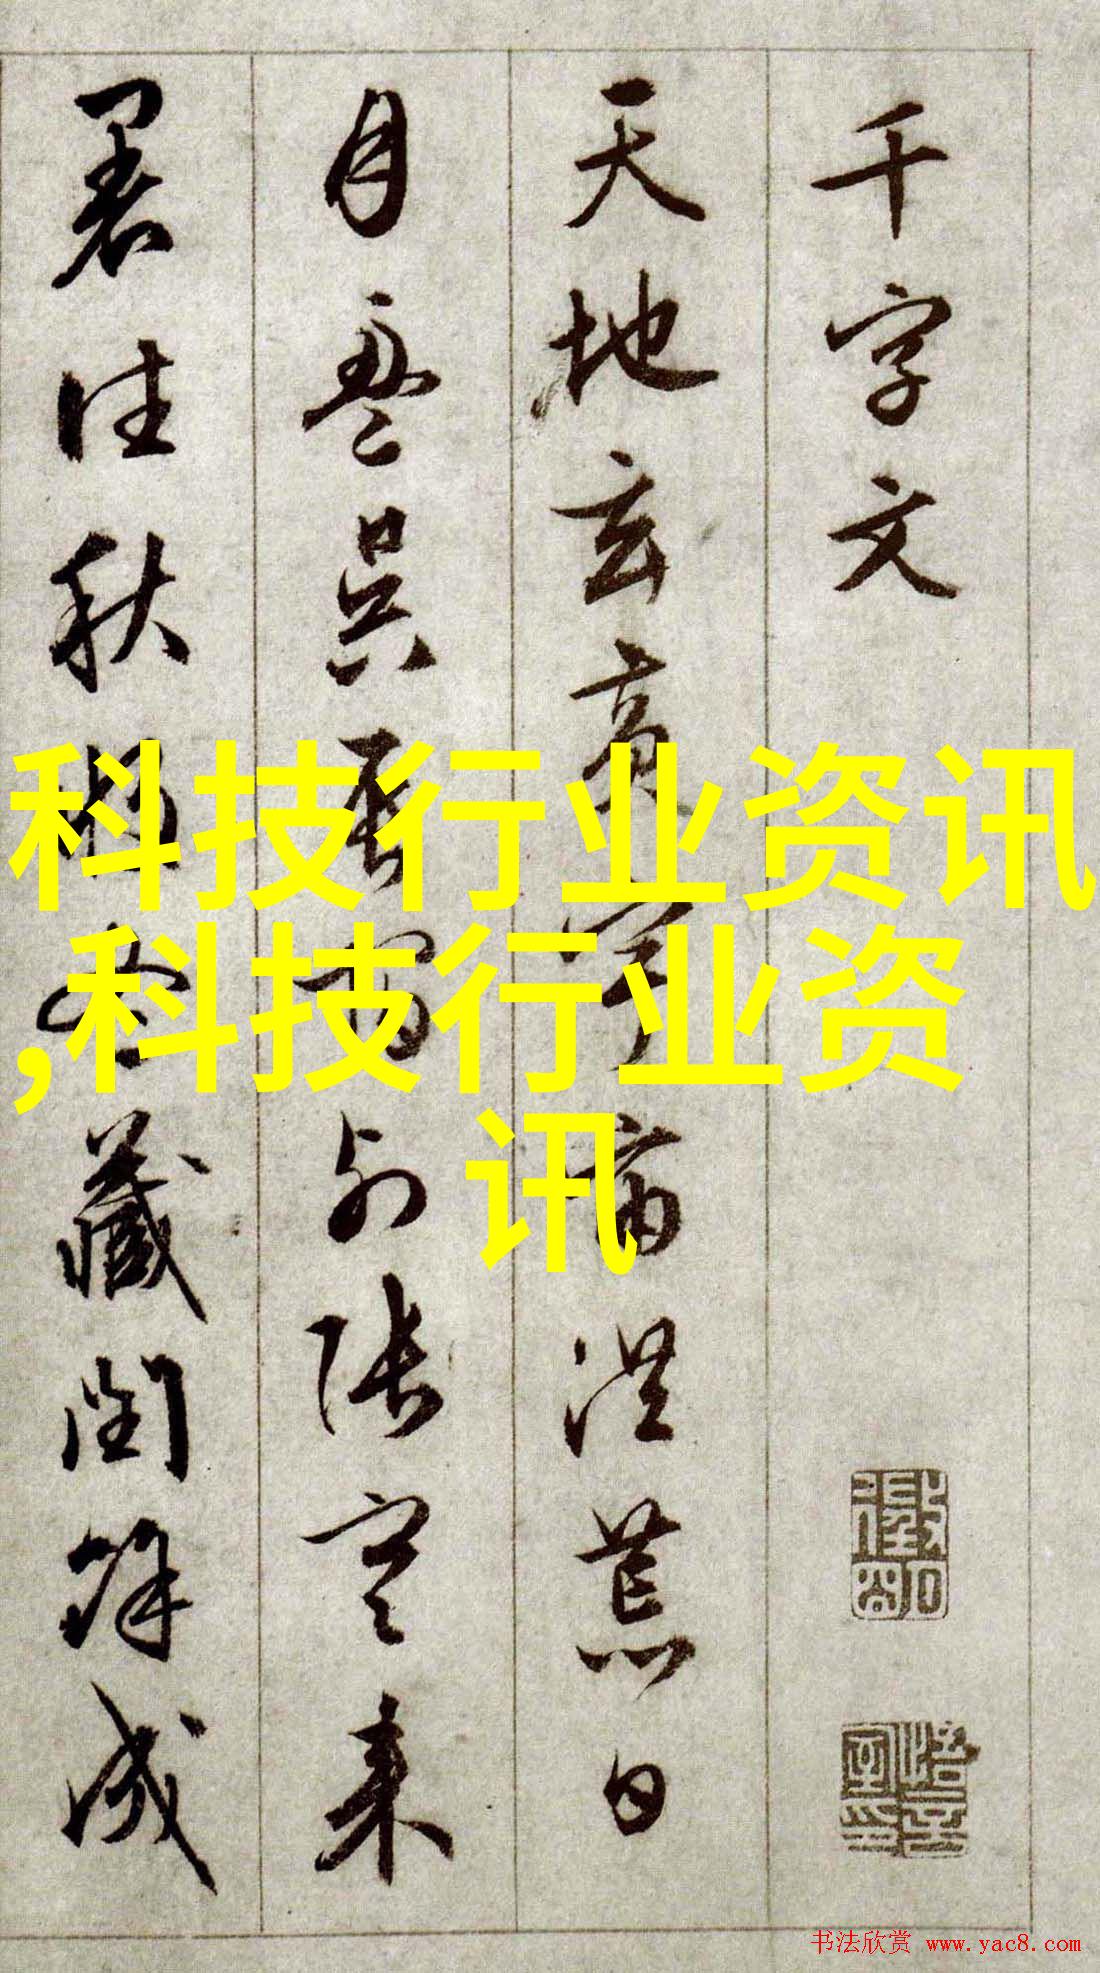 千字文
天地玄黄宇宙洪荒日
月盈昃辰宿列张寒来
暑往秋收冬藏闰馀成
科技行业资讯
,科技行业资
讯
书法欣赏 www.yac8.com